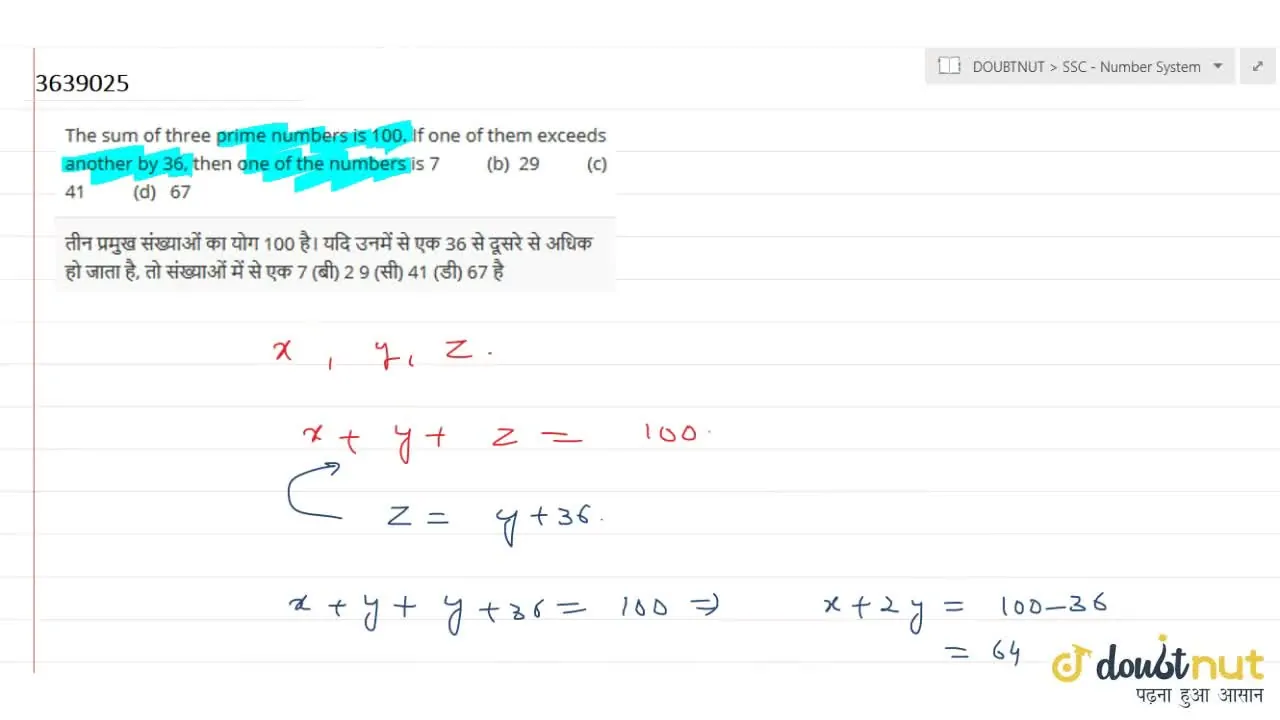 DOUBTNUT > SSC - Number System
3639025
The sum of three prime numbers is 100. If one of them exceeds
another by 36, then one of the numbers is 7 (b) 29 (c)
41 (d) 67
तीन प्रमुख संख्याओं का योग 100 है। यदि उनमें से एक 36 से दूसरे से अधिक
हो जाता है, तो संख्याओं में से एक 7 (बी) 2 9 (सी) 41 (डी) 67 है
x , y, z .
x + y + z = 100.
z = y + 36.
x + y + y + 36 = 100 ⇒ x + 2y = 100 - 36
= 64
doubtnut
पढ़ना हुआ आसान